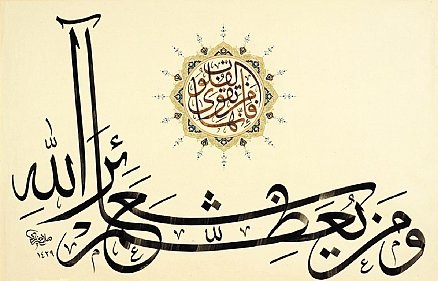 ومن يعظم شعائر الله
فإنها من تقوى القلوب
١٤٢٩